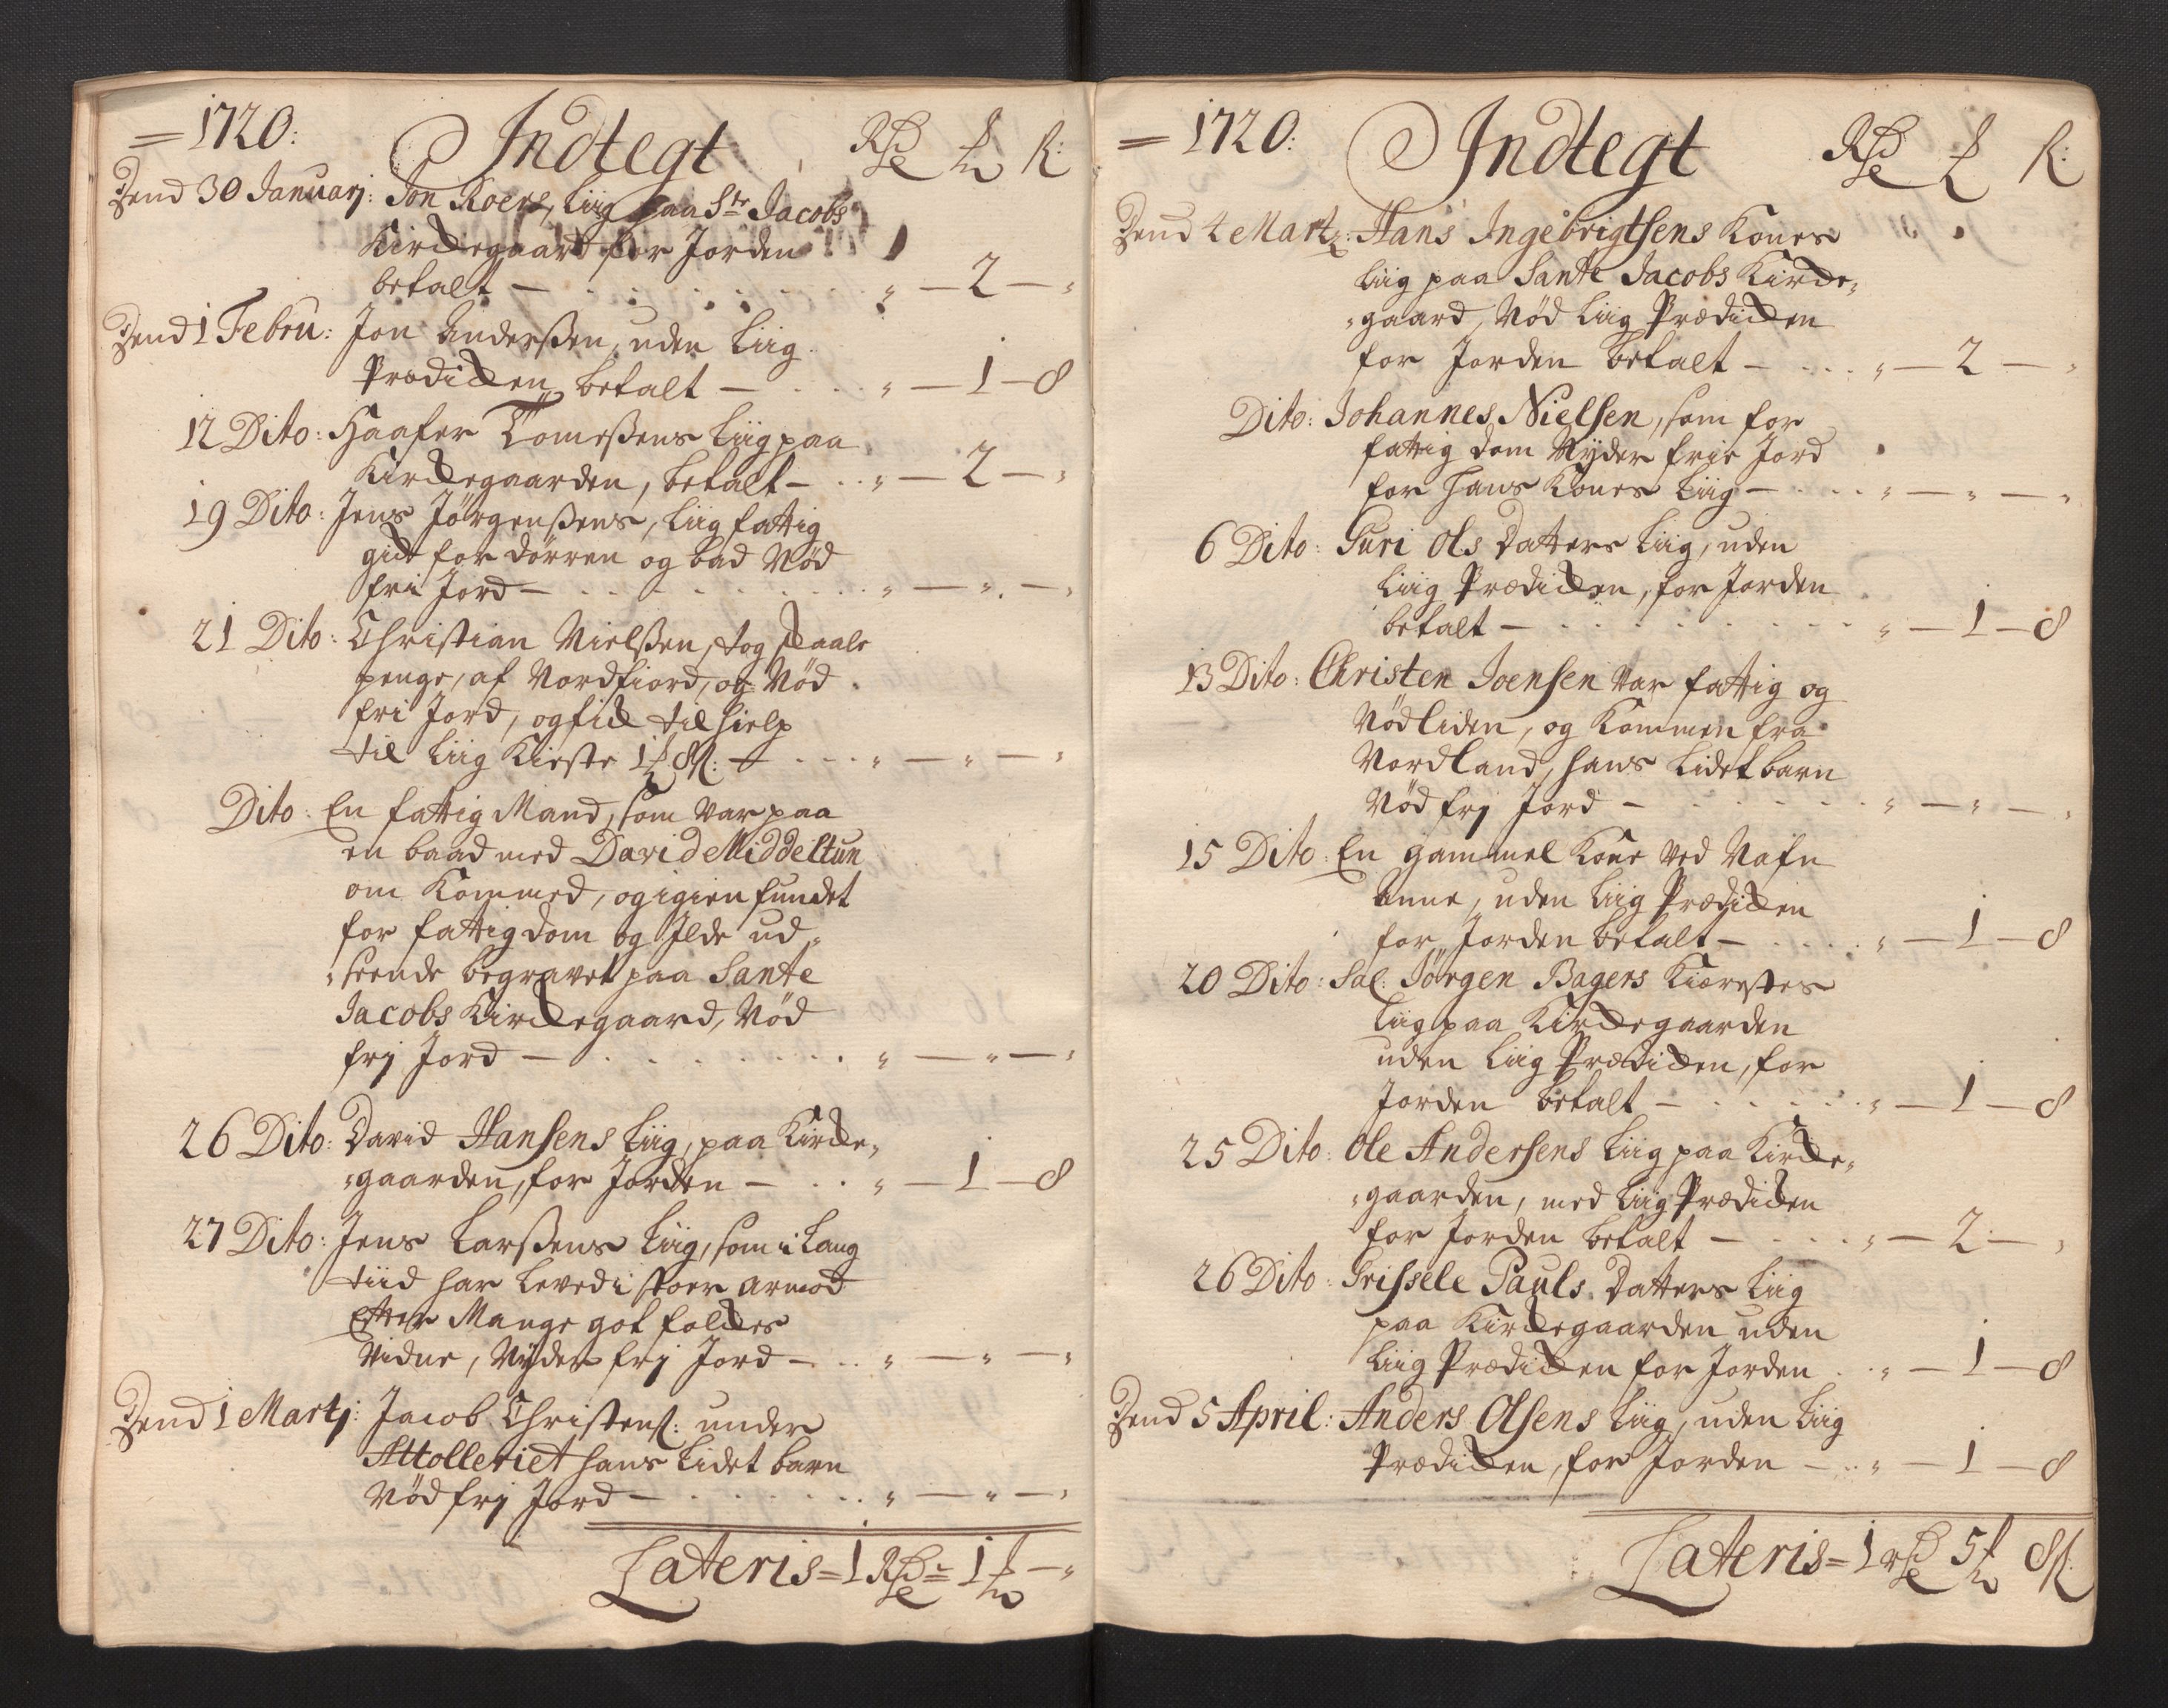 = 1720: Indtegt Rdr ℳ ß:
Dend 30 Januarj: Jon Roers, Liig paa Str Jacobs
Kirckegaard for Jorden
betalt — . . . . . . . „ — 2 — „
Dend 1 Febru: Jon Anderßen, uden Liig
Prædicken, betalt — . . „ — 1 — 8
12 Dito: Haafer Tomeßens Liig paa
Kirckegaarden, betalt — . . „ — 2 — „
19 Dito: Jens Jörgenßens, Liig fattig
gick for dörren og bad Nöd
fri Jord — . . . . . . . „ — „ — „
21 Dito: Christian Nielßen, tog skaale
penge, af Nordfiord, og Nöd
fri Jord, og fick til hielp
til Liig Kieste 1 ℳ 8 ß: — . . . „ — „ — „
Dito: En fattig Mand, som var paa
en baad med David Middeltun
om Kommed, og igien fundet
for fattigdom og Ilde ud„
„seende begravet paa Sante
Jacobs Kirckegaard, Nöd
frj Jord — . . . . . . . „ — „ — „
26 Dito: David Hansens Liig, paa Kircke„
„gaarden, for Jorden — . . „ — 1 — 8
27 Dito: Jens Larßens Liig, som i Lang
tiid har Leved i stoer armod
Efter Mange got folckes
Vidne, Nyder frj Jord — . . „ — „ — „
Dend 1 Martj: Jacob Christens: under
Attolleriet hans Lidet barn
Nöd frj Jord — . . . . . „ — „ — „
Lateris = 1 Rdr = 1 ℳ — „
= 1720: Indtegt Rdr ℳ ß:
Dend 4 Martz: Hans Ingebrigtsens Kones
Liig paa Sante Jacobs Kircke„
„gaard, Nöd Liig Prædicken
for Jorden betalt — . . . „ — 2 — „
Dito: Johannes Nielsen, som for
fattigdom Nyder frie Jord
for hans Kones Liig — . . . „ — „ — „
6 Dito: Guri Ols Datters Liig, uden
Liig Prædicken, for Jorden
betalt — . . . . . . . „ — 1 — 8
13 Dito: Christen Joensen var fattig og
Nödliden, og Kommen fra
Nordland, hans Lidet barn
Nöd frj Jord — . . . . . „ — „ — „
15 Dito: En gammel Kone ved Nafn
Anne, uden Liig Prædicken
for Jorden betalt — . . . . „ — 1 — 8
20 Dito: Sal: Jörgen Bagers Kiærestes
Liig paa Kirckegaarden
uden Liig Prædicken, for
Jorden betalt — . . . . . „ — 1 — 8
25 Dito: Ole Andersens Liig paa Kircke„
„gaarden, med Liig Prædicken
for Jorden betalt — . . . . „ — 2 — „
26 Dito: Grissele Pauls Datters Liig
paa Kirckegaarden uden
Liig Prædicken for Jorden . . „ — 1 — 8
Dend 5 April: Anders Olsens Liig, uden Liig
Prædicken, for Jorden — . . „ — 1 — 8
Lateris = 1 rdr 5 ℳ 8 ß: